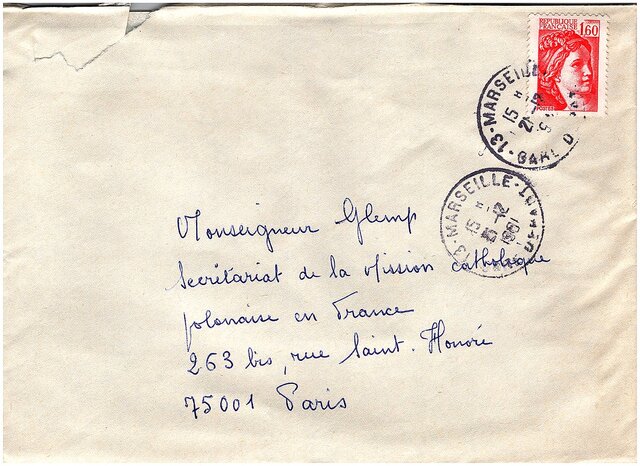 REPUBLIQUE
FRANCAISE
1,60
13-MARSEILLE
15 H
13-MARSEILLE-GARE DEPART
15 H
-12
1981
Monseigneur Glemp
Secrétariat de la Mission catholique
polonaise en France
263 bis, rue Saint-Honoré
75001 Paris